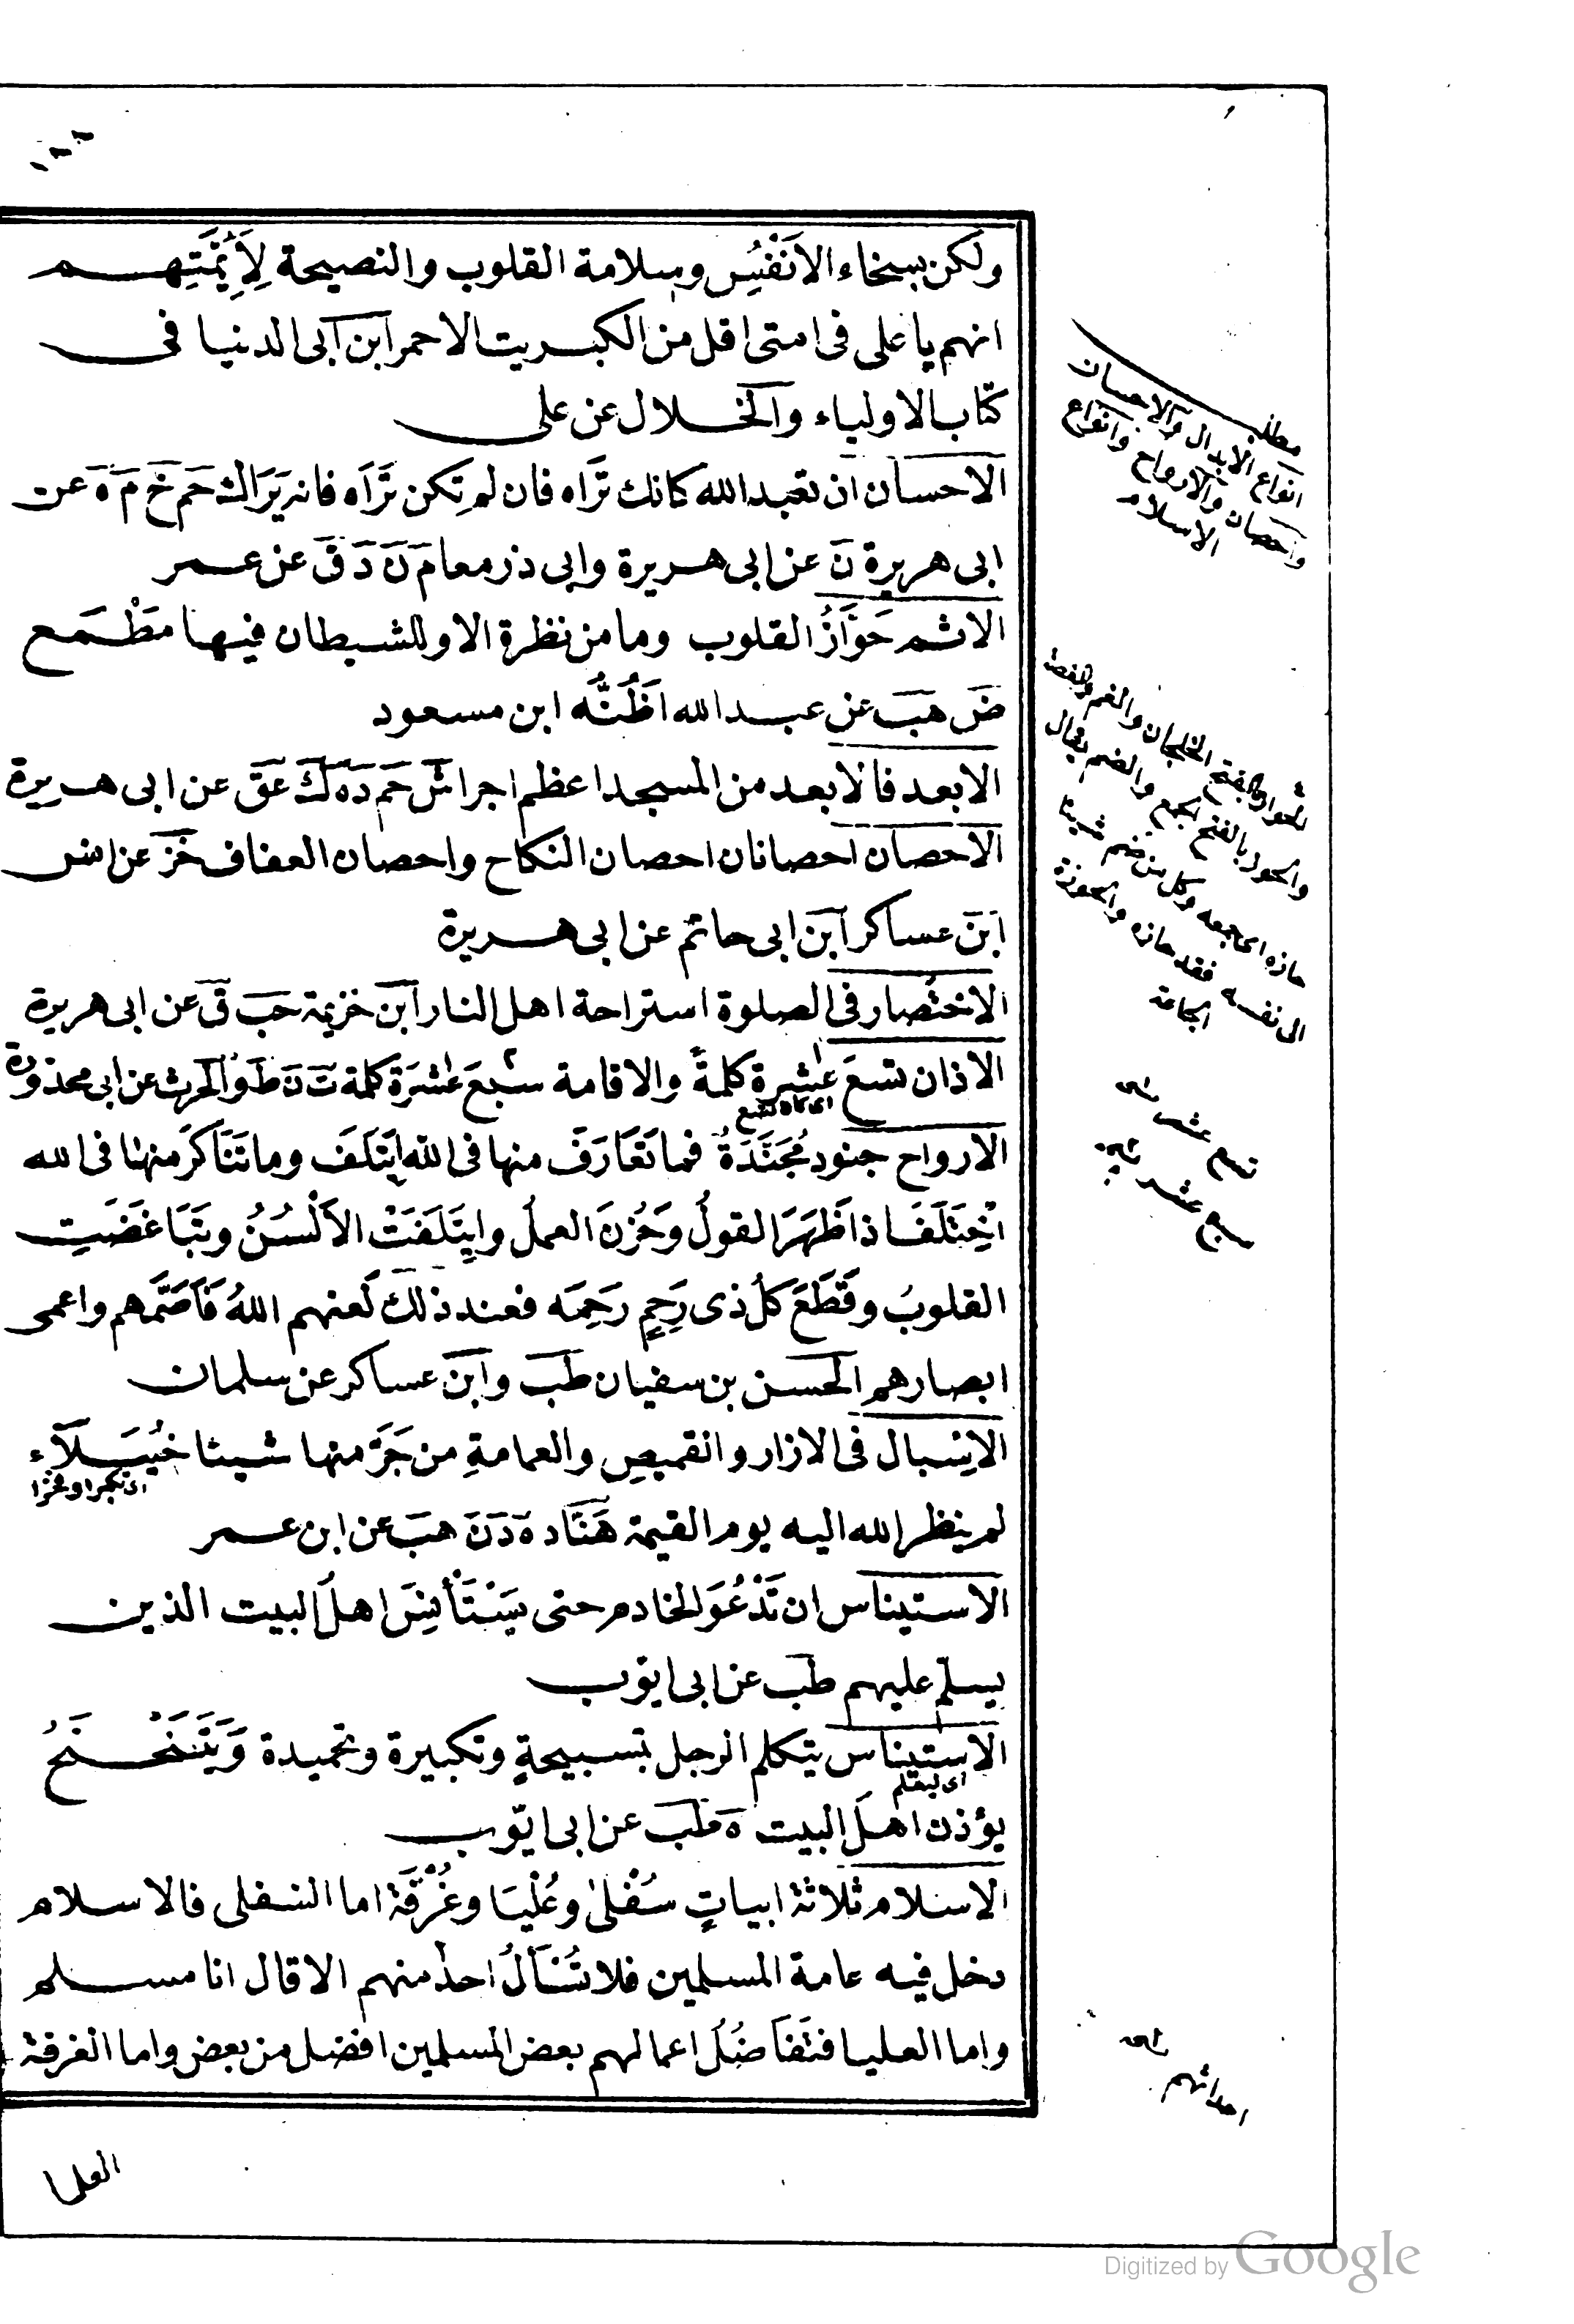 ولكن بسخاء الاَنْفُسِ وسلامة القلوب والنصيحة لِاَئِمَّتِهِم
انهم يا على فى امتى اقل من الكبريت الاحمر ابن ابى الدنيا فى
كتاب الاولياء والخلال عن على
الاحسان ان تعبد الله كانك تَرَاه فان لم تكن تَرَاه فانه يَرَاك حَم خ م ه عن
ابى هريرة ن عن ابى هريرة وابى ذر معا م ن د ق عن عمر
الاثم حَوَّازُ القلوب وما من نظرة الا وللشيطان فيها مَطْمَع
ض هب عن عبد الله اَظُنُّه ابن مسعود
الابعد فالابعد من المسجد اعظم اجرا ش حم د ه ك عق عن ابى هريرة
الاحصان احصانان احصان النكاح واحصان العفاف خز عن انس
ابن عساكر ابن ابى حاتم عن ابى هريرة
الاختصار فى الصلوة استراحة اهل النار ابن خزيمة حب ق عن ابى هريرة
الاذان تسعَ عشرة كلمةً والاقامة سَبْعَ عَشْرَة كلمة ت ن ط والحرث عن ابى محذورة
الارواح جنود مُجَنَّدَةٌ فما تَعَارَفَ منها فى الله اِيتَلَفَ وما تَنَاكَرَ منها فى الله
اخْتَلَفَ اذا ظَهَرَ القولُ وَخُزِنَ العملُ وايتَلَفَتْ الاَلْسُنُ وتَبَاغَضَتِ
القلوبُ وقَطَعَ كلُّ ذى رَحِمٍ رَحِمَه فعند ذلك لَعنهم اللهُ فَاَصَمَّهم واعمى
ابصارهم الحسن بن سفيان طب وابن عساكر عن سلمان
الاِسْبال فى الازار والقميصِ والعمامةِ من جَرَّ منها شيئا خُيَلَآء
اى تكبرا وفخرا
لم ينظر الله اليه يوم القيمة هَنَّاد ه د ن هب عن ابن عمر
الاستيناس ان تَدْعُوَ الخادم حتى يَسْتَأْنِسَ اهلُ البيت الذين
يسلم عليهم طب عن ابى ايوب
الاستيناس يتكلم الرجل تسبيحةٍ وتكبيرة وتحميدة وَيَتَنَحْنَحُ
اى ليعلم
يؤذن اهلَ البيت ه طب عن ابى ايّوب
الاسلام ثلاثة ابياتٍ سُفْلى وعُلْيَا وغُرْفَة اما السفلى فالاسلام
دخل فيه عامة المسلمين فلا تُسْأَلُ احدٌ منهم الا قال انا مسلم
واما العليا فتَفَاضُلُ اعمالهم بعض المسلمين افضل من بعض واما الغرفة
العليا
مطلب
انواع الابدال والاحسان
واحصان والارواح وانواع
الاسلام
والحوز بالفتح الجمع والضم يقال
حازه اى جمعه وكل من ضم شيئا
الى نفسه فقد حازه
تسع عشر
سبع عشر
Digitized by Google